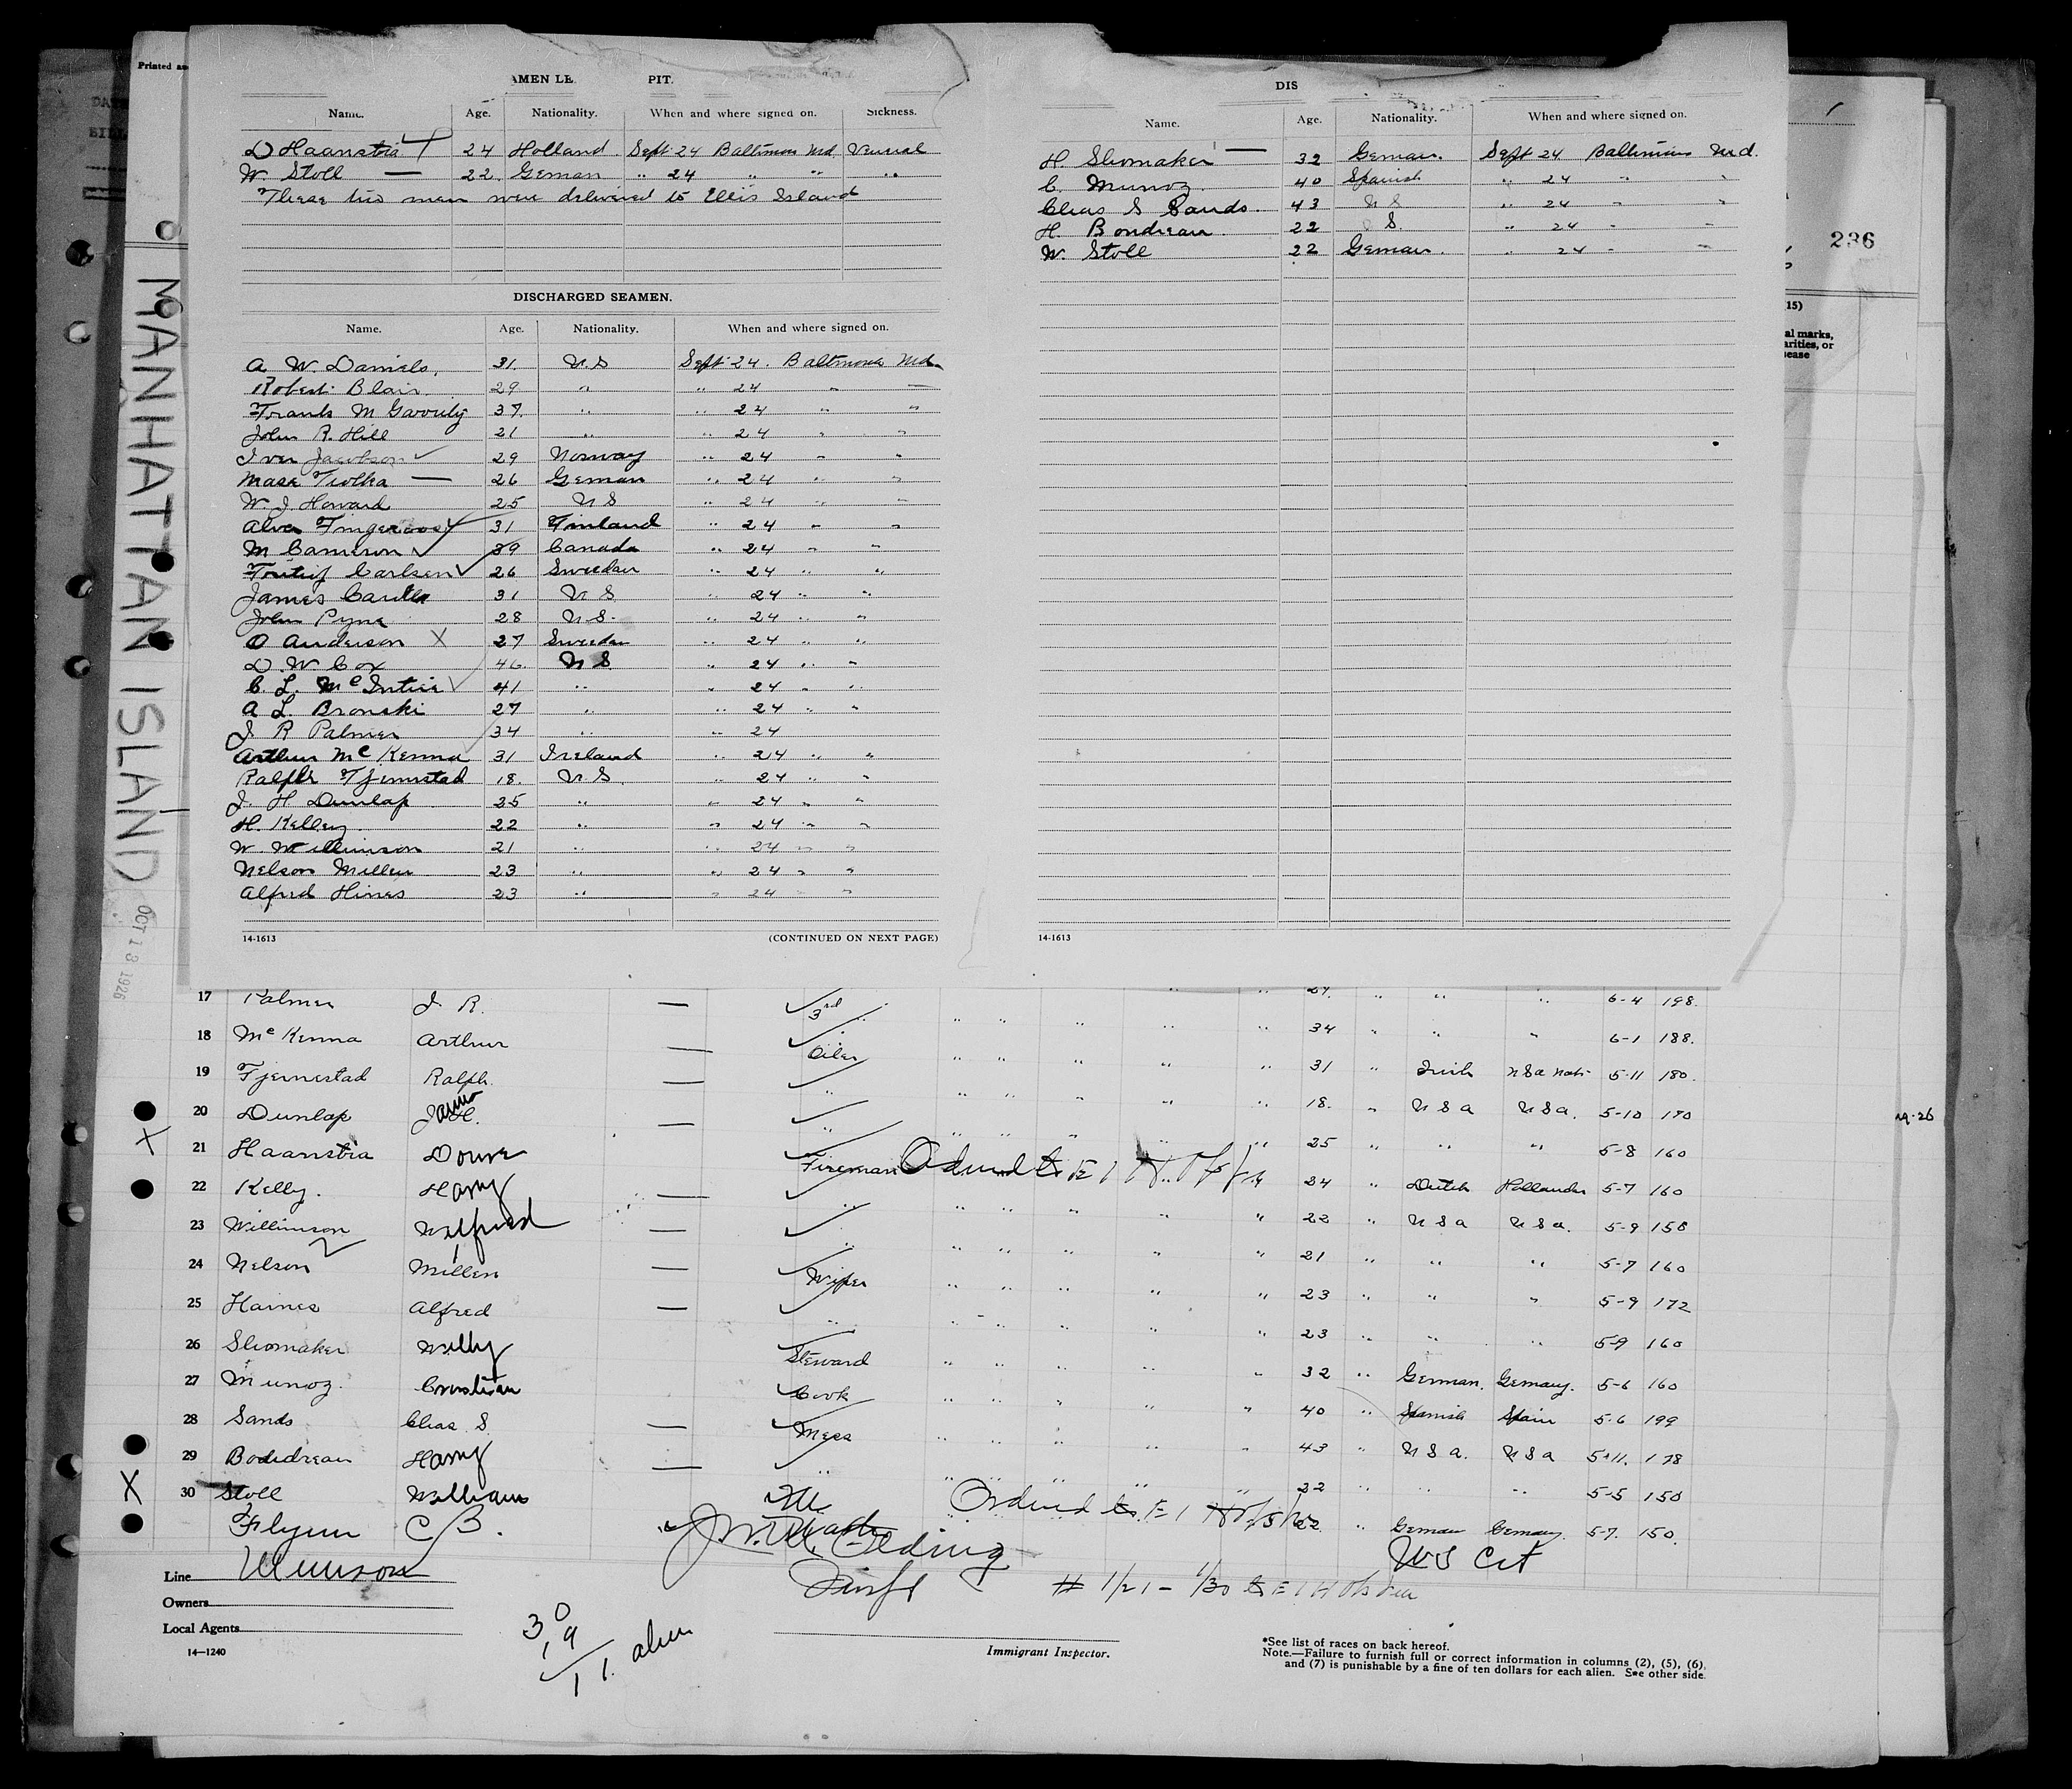 Printed an
AMEN LE PIT.
Name. Age. Nationality. When and where signed on. Sickness.
D Haanstra 24 Holland Sept 24 Baltimore Md Venreal
W Stoll — 22 German " 24 " " "
These two men were delivered to Ellis Island
DISCHARGED SEAMEN.
Name. Age. Nationality. When and where signed on.
A W. Daniels. 31. U.S Sept 24. Baltimore Md.
Robert Blair. 29 " " 24 " "
Frank M Garrity 37. " " 24 " "
John R. Hill 21 " " 24 " "
Iver Jacobson 29 Norway " 24 " "
Max Fiolka — 26 German " 24 " "
W. J. Howard 25 U S " 24 " "
Alver Fingerroos 31 Finland " 24 " "
M Cameron 39 Canada " 24 " "
Carlsen 26 Sweden " 24 " "
James 31 U S. " 24 " "
John Pyne 28 U.S. " 24 " "
O Anderson X 27 Sweden " 24 " "
D. W Cox 46 U S " 24 " "
C. L. McIntire 41 " " 24 " "
A L. Bronski 27 " " 24 " "
J R Palmer 34 " " 24
Arthur Mc Kenna 31 Ireland " 24 " "
Ralph Fjermestad 18. U S. " 24 " "
J. H. Dunlap 25 " " 24 " "
H. Kelley. 22 " " 24 " "
W. Willimson 21 " " 24 " "
Nelson Miller 23 " " 24 " "
Alfred Hines 23 " " 24 " "
14-1613 (CONTINUED ON NEXT PAGE)
DIS
Name. Age. Nationality. When and where signed on.
H. Shomaker — 32 German. Sept 24 Baltimore Md.
C. Munoz. 40 Spanish " 24 " "
Chas S Sands. 43 U S " 24 " "
H. Bondreau. 22 S. " 24 " "
W. Stoll 22 German. " 24 " "
14-1613
MANHATTAN ISLAND
OCT 13 1926
236
15)
al marks,
arities, or
sease
17 Palmer J. R. — 3rd " " " " " " 27. " " " 6-4 198.
18 Mc Kenna Arthur — Oiler " " " " " 34 " " " 6-1 188.
19 Fjermestad Ralph. — " " " " " " 31 " Irish USA Nat. 5-11 180.
20 Dunlap James H. — " " " " " " 18. " U S A U S A. 5-10 170
21 Haanstra Douwe Fireman Ordered to E I Hosp " 25 " " " 5-8 160
22 Kelly. Harry — " " " " " " 24 " Dutch Hollander 5-7 160
23 Willimson Wilfred — " " " " " " 22 " U S A U S A. 5-9 158
24 Nelson Millen — Wiper " " " " " 21 " " " 5-7 160
25 Haines Alfred — " " " " " " 23 " " " 5-9 172
26 Shomaker Willy Steward " " " " " 23 " " " 5-9 160
27 Munoz. Cristian Cook " " " " " 32 " German. Germany. 5-6 160
28 Sands Chas. S. — Mess " " " " " 40 " Spanish Spain 5-6 199
29 Boudreau Harry — " " " " " " 43 " U S A. U S A 5-11. 178
30 Stoll William " " " " " 22 " " " 5-5 150
Flynn C B. Ordered to E I Hosp 22 " German Germany. 5-7. 150.
US Cit
Line Munson
Owners
Local Agents
14—1240
30
19
11. alien
# 1/21 - 1/30 to E I
Immigrant Inspector.
*See list of races on back hereof.
Note.—Failure to furnish full or correct information in columns (2), (5), (6),
and (7) is punishable by a fine of ten dollars for each alien. See other side.